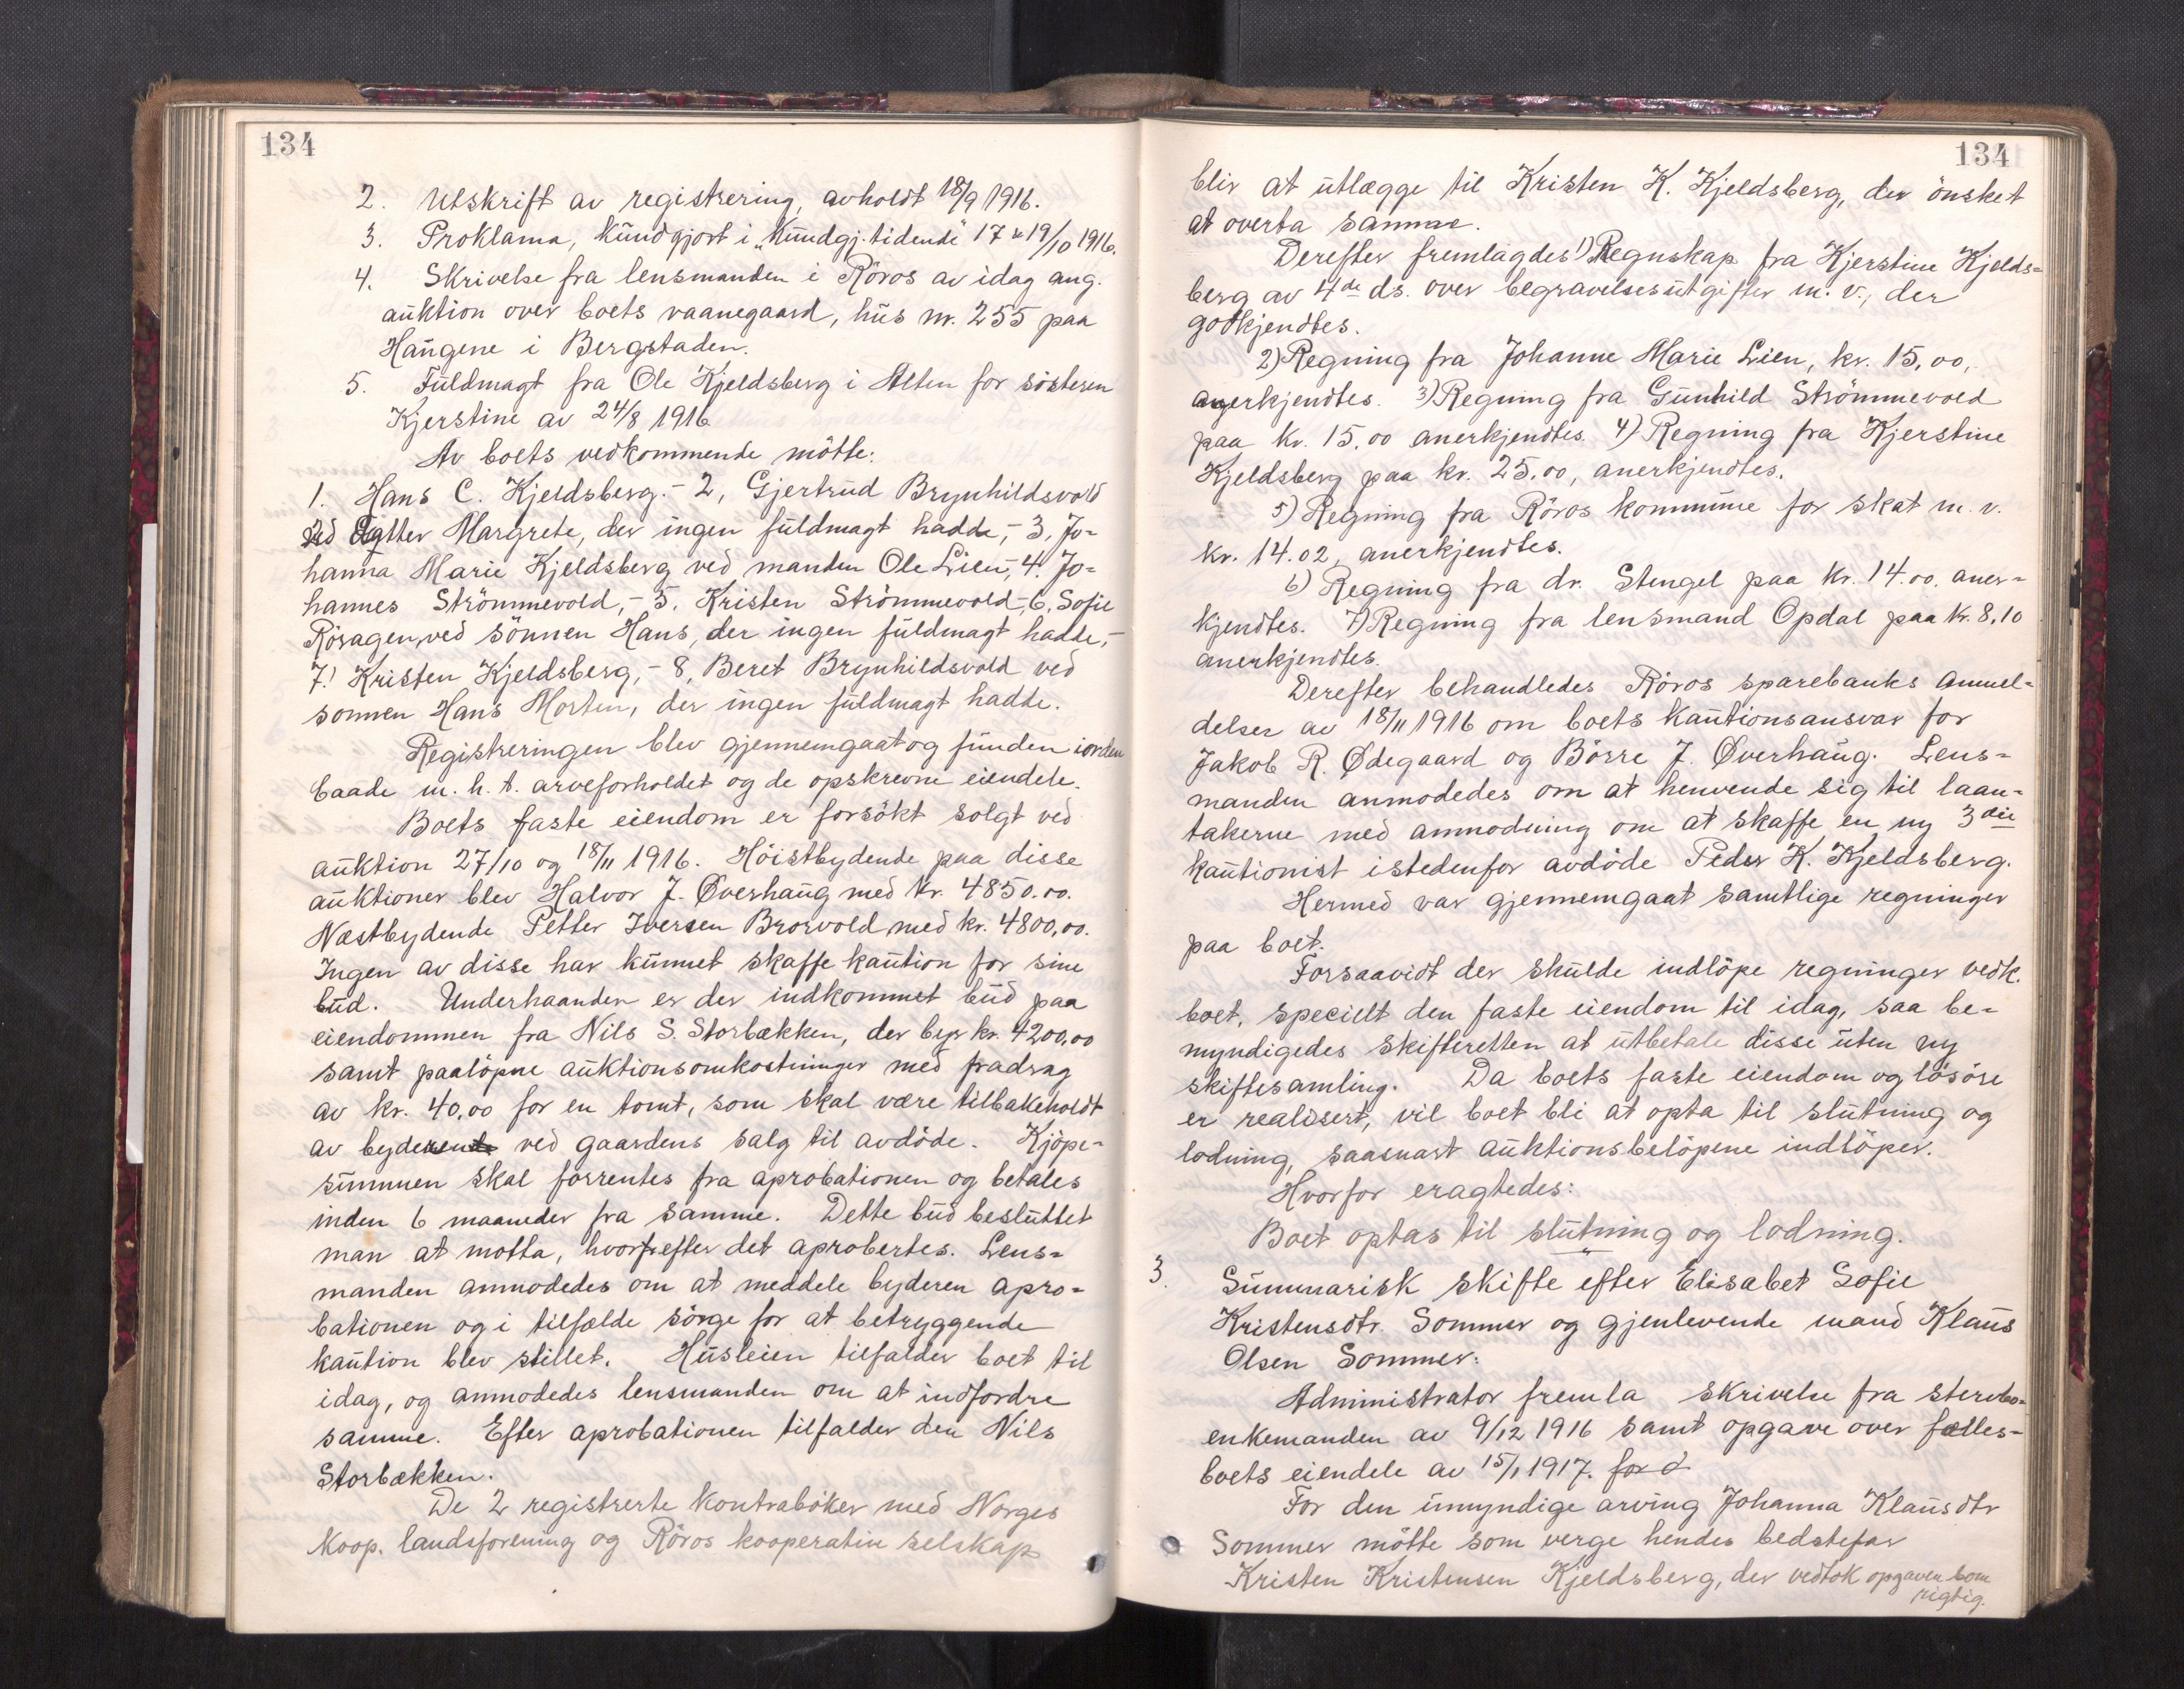 134
2. Utskrift av registrering, avholdt 18/9 1916.
3. Proklama, kundgjort i „Kundgj. tidende" 17 & 19/10 1916.
4. Skrivelse fra lensmanden i Röros av idag ang.
auktion over boets vaanegaard, hus nr. 255 paa
Haugene i Bergstaden.
5. Fuldmagt fra Ole Kjeldsberg i Alten for söstesen
Kjerstine av 24/8 1916
Av boets vedkommende mötte:
1. Hans C. Kjeldsberg. - 2, Gjertrud Brynhildsvold
ved datter Margrete, der ingen fuldmagt hadde, - 3, Jo-
hanna Marie Kjeldsberg ved manden Ole Lien, - 4. Jo-
hannes Strömmevold, - 5. Kristen Strömmevold, - 6, Sofie
Rösagen, ved sönnen Hans, der ingen fuldmagt hadde, -
7. Kristen Kjeldsberg, - 8, Beret Brynhildsvold ved
sönnen Hans Morten, der ingen fuldmagt hadde.
Registreringen blev gjennemgaat og funden iorden
baade m. h. t. arveforholdet og de opskrevne eiendele.
Boets faste eiendom er forsökt solgt ved
auktion 27/10 og 18/11 1916. Höistbydende paa disse
auktioner blev Halvor J. Øverhaug med kr. 4850.00.
Næstbydende Petter Iversen Brorvold med kr. 4800,00.
Ingen av disse har kunnet skaffe kaution for sine
bud. Underhaanden er der indkommet bud paa
eiendommen fra Nils S. Storbækken, der byr kr. 4200,00
samt paalöpne auktionsomkostninger med fradrag
av kr. 40,00 for en tomt, som skal være tilbakeholdt
av byderen ved gaardens salg til avdöde. Kjöpe-
summen skal forrentes fra aprobationen og betales
inden 6 maaneder fra samme. Dette bud besluttet
man at motta, hvorefter det aprobertes. Lens-
manden anmodedes om at meddele byderen apro-
bationen og i tilfælde sörge for at betryggende
kaution blev stillet. Husleien tilfalder boet til
idag, og anmodedes lensmanden om at indfordre
samme. Efter aprobationen tilfalder den Nils
Storbækken.
De 2 registrerte kontraböker med Norges
Koop. landsforening og Röros kooperativ selskap
134
blir at utlægge til Kristen K. Kjeldsberg, der önsket
at overta samme.
Derefter fremlagdes 1) Regnskap fra Kjerstine Kjelds-
berg av 4de ds. over begravelsesutgifter m. v., der
godkjendtes.
2) Regning fra Johanne Marie Lien, kr. 15,00,
anerkjendtes. 3) Regning fra Gunhild Strömmevold
paa kr. 15,00 anerkjendtes. 4) Regning fra Kjerstine
Kjeldsberg paa kr. 25.00, anerkjendtes.
5) Regning fra Röros kommune for skat m. v.
kr. 14.02, anerkjendtes.
6) Regning fra dr. Stengel paa kr. 14.00. aner-
kjendtes. 7) Regning fra lensmand Opdal paa kr. 8,10
anerkjendtes.
Derefter behandledes Röros sparebanks anmel-
delser av 18/11 1916 om boets kautionsansvar for
Jakob R. Ødegaard og Börre J. Øverhaug. Lens-
manden anmodedes om at henvende sig til laan-
takerne med anmodning om at skaffe en ny 3die
kautionist istedenfor avdöde Peder K. Kjeldsberg.
Hermed var gjennemgaat samtlige regninger
paa boet.
Forsaavidt der skulde indlöpe regninger vedk.
boet, specielt den faste eiendom til idag, saa be-
myndigedes skifteretten at utbetale disse uten ny
skiftesamling. Da boets faste eiendom og lösöre
er realisert, vil boet bli at opta til slutning og
lodning, saasnart auktionsbelöpene indlöper.
Hvorfor eragtedes:
Boet optas til slutning og lodning.
3. Summarisk skifte efter Elisabet Sofie
Kristensdtr. Sommer og gjenlevende mand Klaus
Olsen Sommer:
Administrator fremla skrivelse fra stervbo-
enkemanden av 9/12 1916 samt opgave over fælles-
boets eiendele av 15/1 1917. for d
For den umyndige arving Johanna Klausdtr
Sommer mötte som verge hendes bedstefar
Kristen Kristensen Kjeldsberg, der vedtok opgaven som
rigtig.